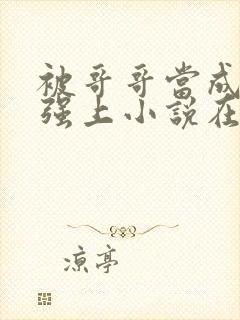 被哥哥當成
强上小說在
凉亭